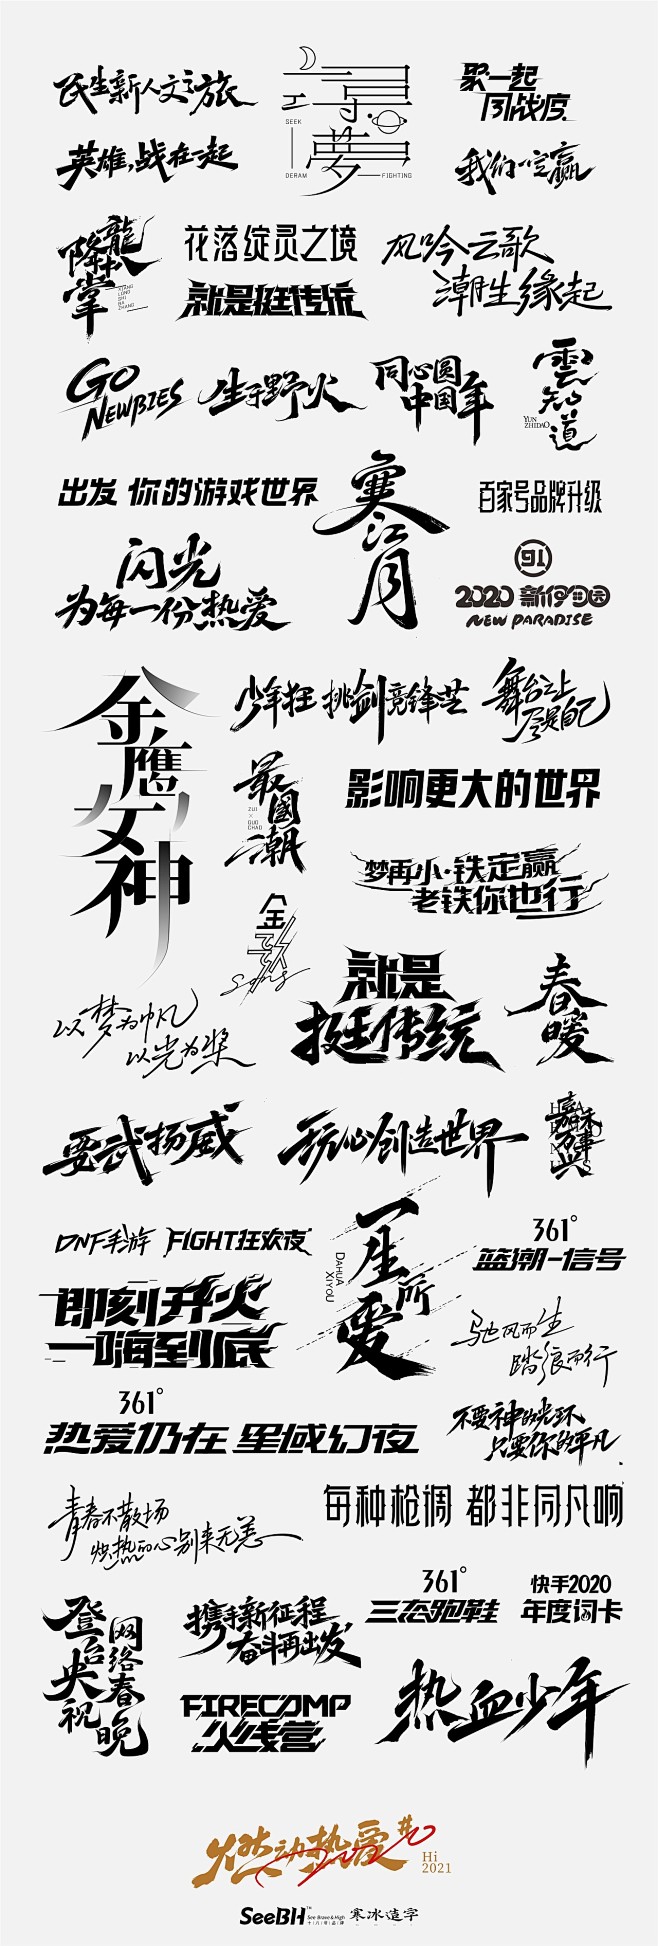 民生新人文之旅
英雄,战在一起
寻梦
SEEK
DERAM
FIGHTING
聚一起
同战疫
我们一定赢
降龍十八掌
XIANG
LONG
SHI
BA
ZHANG
花落绽灵之境
就是挺传统
风吟云歌
潮生缘起
GO
NEWBIES
生于野火
同心圆
中国年
雲知道
YUN
ZHIDAO
出发 你的游戏世界
寒江月
百家号品牌升级
闪光
为每一份热爱
91
2020 新伊甸园
NEW PARADISE
金鹰女神
少年狂 挑剑竞锋芒
舞台之上
尽是自己
最國潮
ZUI
×
GUO
CHAO
影响更大的世界
梦再小·铁定赢
老铁你也行
以梦为帆
以光为桨
就是
挺传统
春暖
耍武扬威
玩心创造世界
嘉禾万事兴
DNF手游 FIGHT狂欢夜
即刻开火
一嗨到底
一生所爱
DAHUA
XIYOU
361°
篮潮-信号
驰风而生
踏浪而行
361°
热爱仍在 星域幻夜
不要神的光环
只要你的平凡
青春不散场
炽热的心别来无恙
每种枪调 都非同凡响
登台央视
网络春晚
携手新征程
奋斗再出发
361°
三态跑鞋
快手2020
年度词卡
FIRECAMP
火线营
热血少年
燃动热爱
Hi
2021
SeeBH™
See Brave & High
十八年品牌
寒冰造字